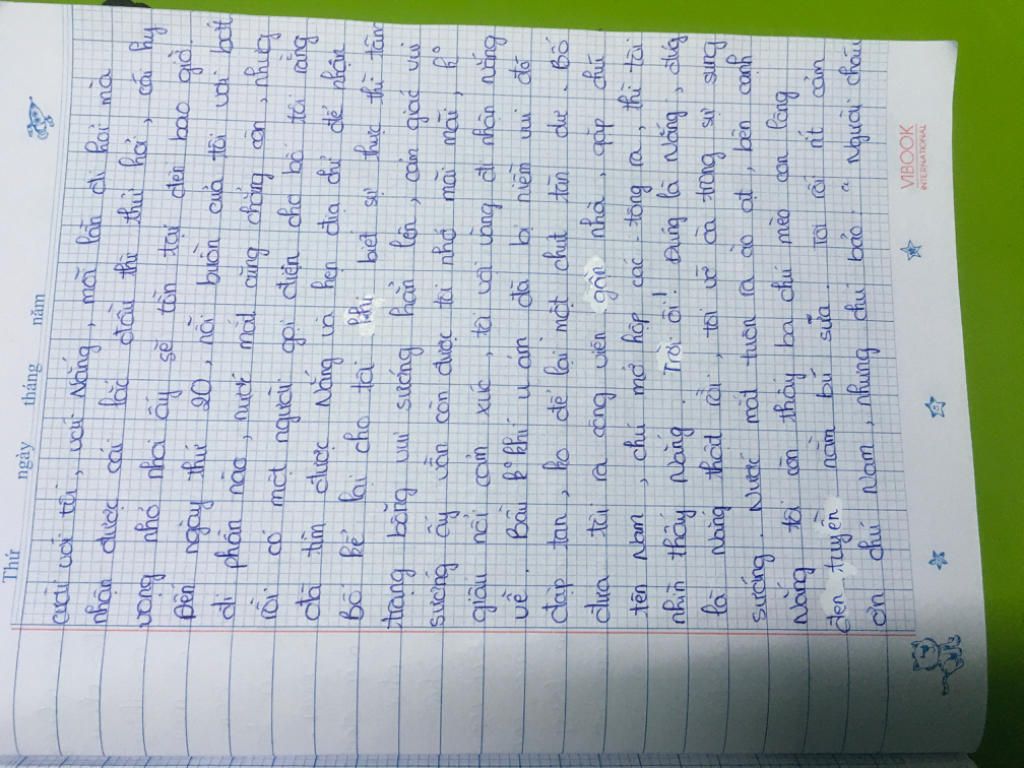 Thứ ngày tháng năm
cười với tôi, với Nắng, mỗi lần đi hỏi mà
nhận được cái lắc đầu thì thủi hỏi, cái hy
vọng nhỏ nhoi ấy sẽ tồn tại đến bao giờ.
Đến ngày thứ 20, nỗi buồn của tôi vơi bớt
đi phần nào, nước mắt cũng chẳng còn, nhưng
rồi có một người gọi điện cho bố tôi rằng
đã tìm được Nắng và hẹn địa chỉ để nhận.
Bố kể lại cho tôi khi biết sự thực thì tâm
trạng bỗng vui sướng hẳn lên, cảm giác vui
sướng ấy vẫn còn được tôi nhớ mãi mãi, ko
giấu nổi cảm xúc, tôi vội vàng đi nhận nắng
về. Bầu ko khí u ám đã bị niềm vui đó
dập tan, ko để lại một chút tàn dư. Bố
đưa tôi ra công viên gần nhà, gặp chú
tên Nam, chú mở hộp các-tông ra, thì tôi
nhìn thấy Nắng. Trời ơi! Đúng là Nắng, đúng
là Nắng thật rồi, tôi vỡ oà trong sự sung
sướng. Nước mắt tuôn ra ào ạt, bên cạnh
Nắng tôi còn thấy ba chú mèo con lông
đen tuyền nằm bú sữa. Tôi rối rít cảm
ơn chú Nam, nhưng chú bảo: " Người cháu
VIBOOK
INTERNATIONAL